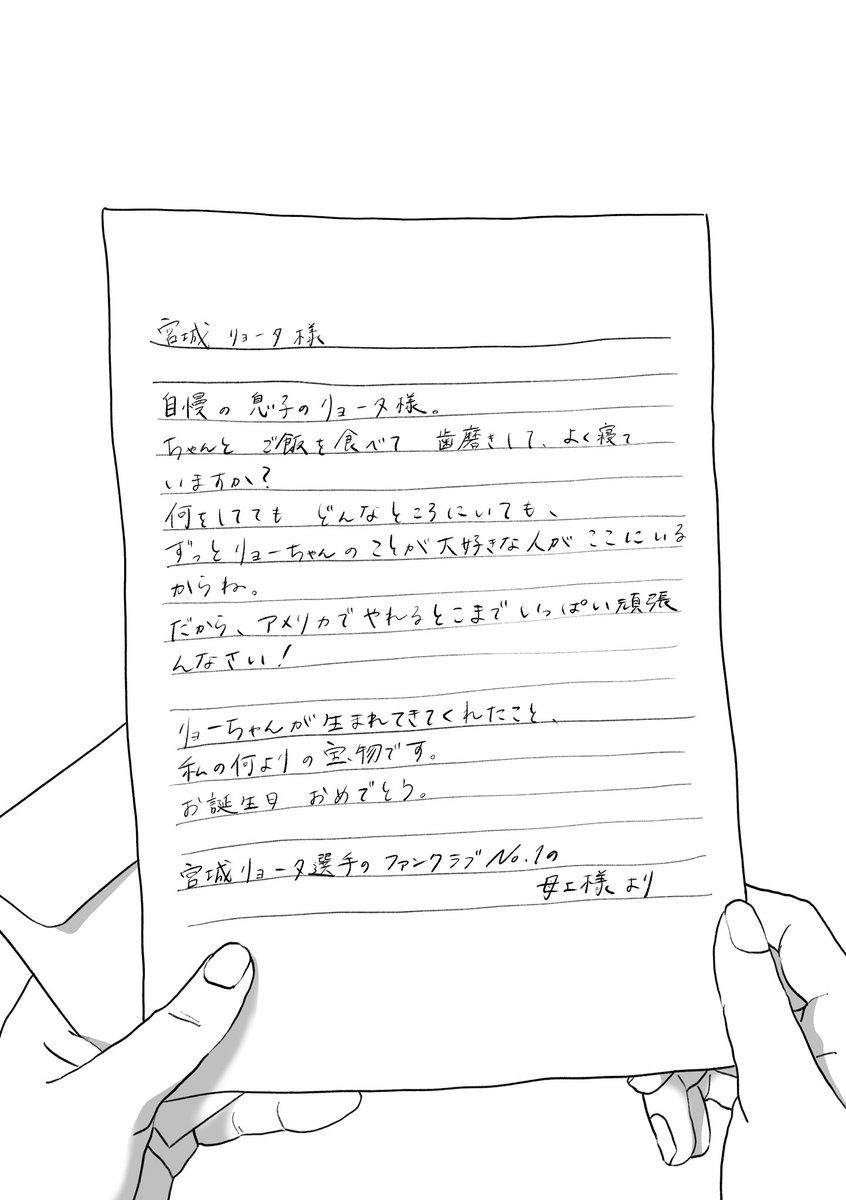 宮城 リョータ様
自慢の 息子のリョータ様。
ちゃんと ご飯を食べて 歯磨きして、よく寝て
いますか?
何をしてても どんなところにいても、
ずっとリョーちゃんのことが大好きな人が ここにいる
からね。
だから、アメリカでやれるとこまでいっぱい頑張
んなさい!
リョーちゃんが生まれてきてくれたこと、
私の何よりの宝物です。
お誕生日 おめでとう。
宮城リョータ選手の ファンクラブNo.1の
母上様 より